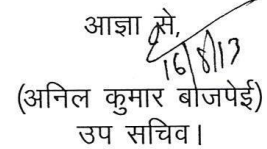 आज्ञा से,
16/8/13
(अनिल कुमार बाजपेई)
उप सचिव।